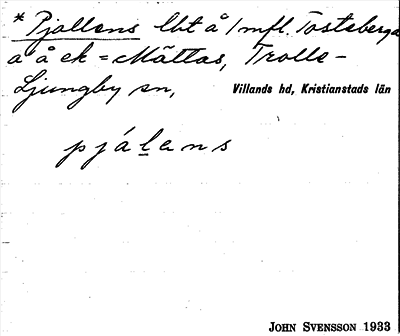 * Pjallens lbt å /mfl. Tosteberga
a å ek = Måttas, Trolle-
Ljungby sn,
Villands hd, Kristianstads län
pjálens
JOHN SVENSSON 1933